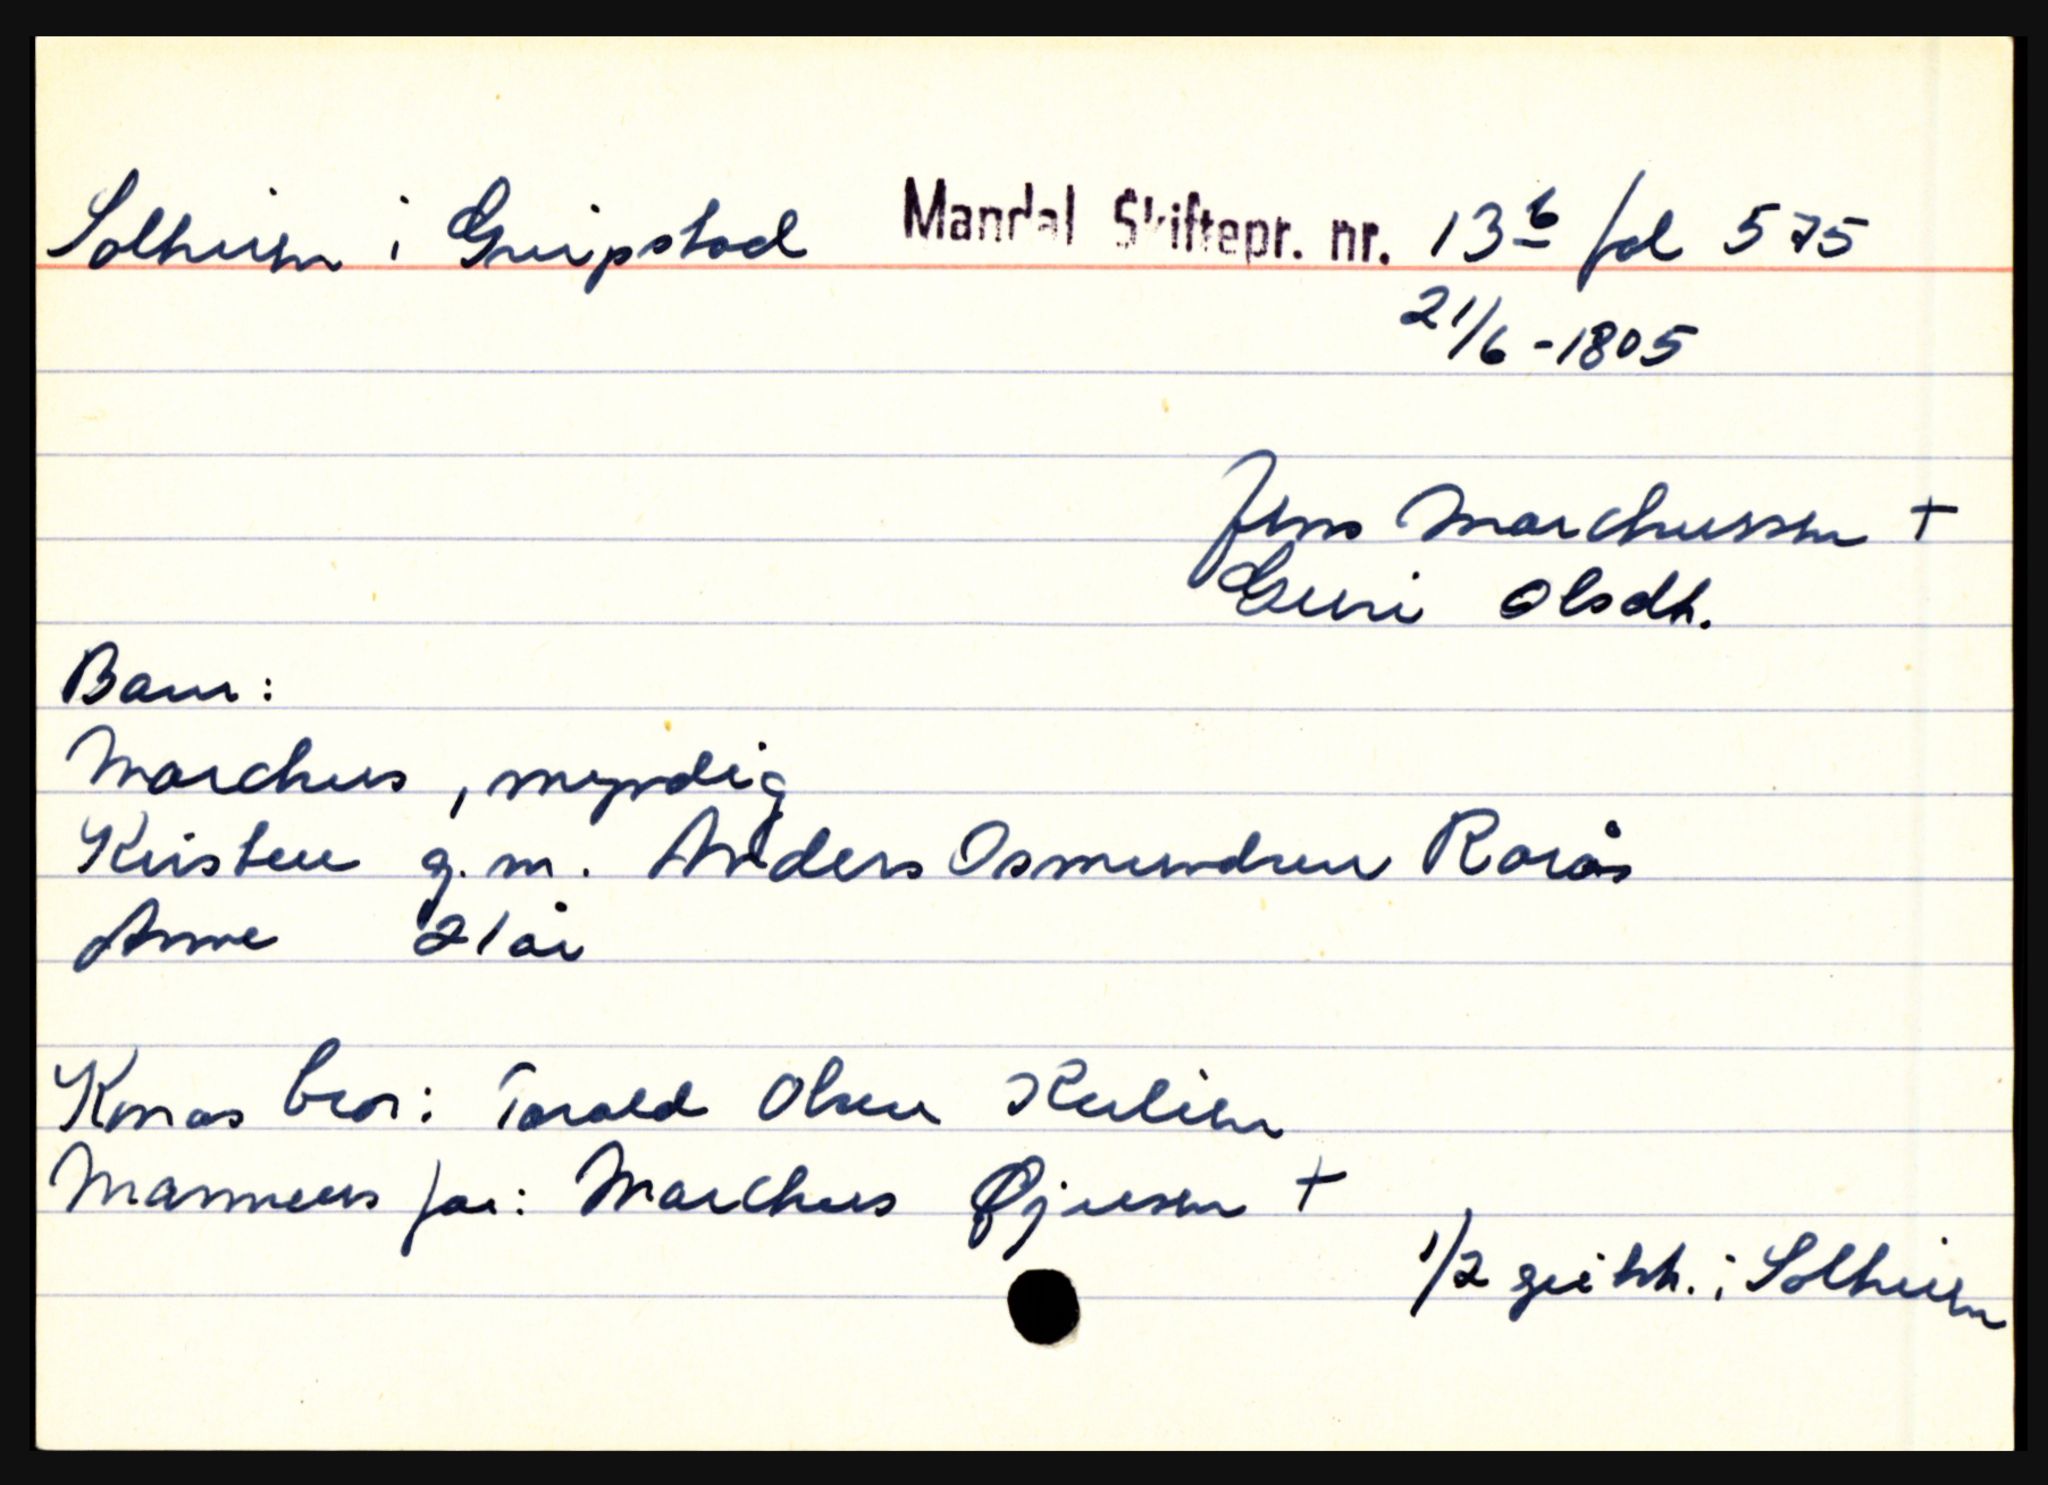 Solheim i Greipstad Mandal Skiftepr. nr. 13b fol 575
21/6-1805
Jens Marchussen +
Guri Olsdh.
Barn:
Marchus, myndig
Kirsten g.m. Anders Osmundsen Rorås
Anne 21 år
Konas bror: Torald Olsen
Mannens far: Marchus Øjusen +
1/2 grihh. i Solheim